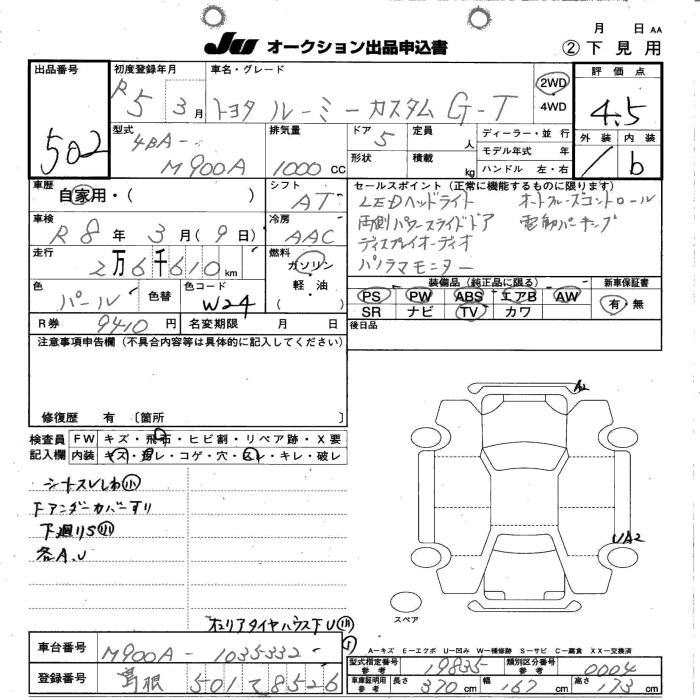 月 日 AA
JU オークション出品申込書
② 下見用
出品番号
502
初度登録年月
R5 3月
車名・グレード
トヨタ ルーミー カスタム G-T
2WD
4WD
評価点
4.5
外装 内装
b
型式
4BA-
M900A
排気量
1000 CC
ドア
5
定員
人
形状
積載
kg
ディーラー・並行
モデル年式 年
ハンドル 左・右
車歴
自家用・( )
シフト
AT
セールスポイント(正常に機能するものに限ります)
LEDヘッドライト オートクルーズコントロール
両側パワースライドドア 電動パーキング
ディスプレイオーディオ
パノラマモニター
車検
R8年 3月(9日)
冷房
AAC
走行
2万6千610km
燃料
ガソリン
・軽油・
( )
色
パール
色替
色コード
W24
装備品(純正品に限る)
PS PW ABS エアB AW
SR ナビ TV カワ
新車保証書
有・無
R券 9410円
名変期限 月 日
後日品
注意事項申告欄(不具合内容等は具体的に記入してください)
修復歴 有 〔箇所 〕
検査員
記入欄
FW キズ・飛石・ヒビ割・リペア跡・X要
内装 キズ・ヨゴレ・コゲ・穴・スレ・キレ・破レ
シートスレしわ小
下アンダーカバーすり
下廻りS小
各A.U
A2
UA2
スペア
車台番号 M900A-1035332
登録番号 島根 501 て 8526
A-キズ E-エクボ U-凹み W-補修跡 S-サビ C-腐食 XX-交換済
型式指定番号 参考 19835
類別区分番号 参考 0004
車庫証明用 参考 長さ 370cm 幅 167cm 高さ 173cm